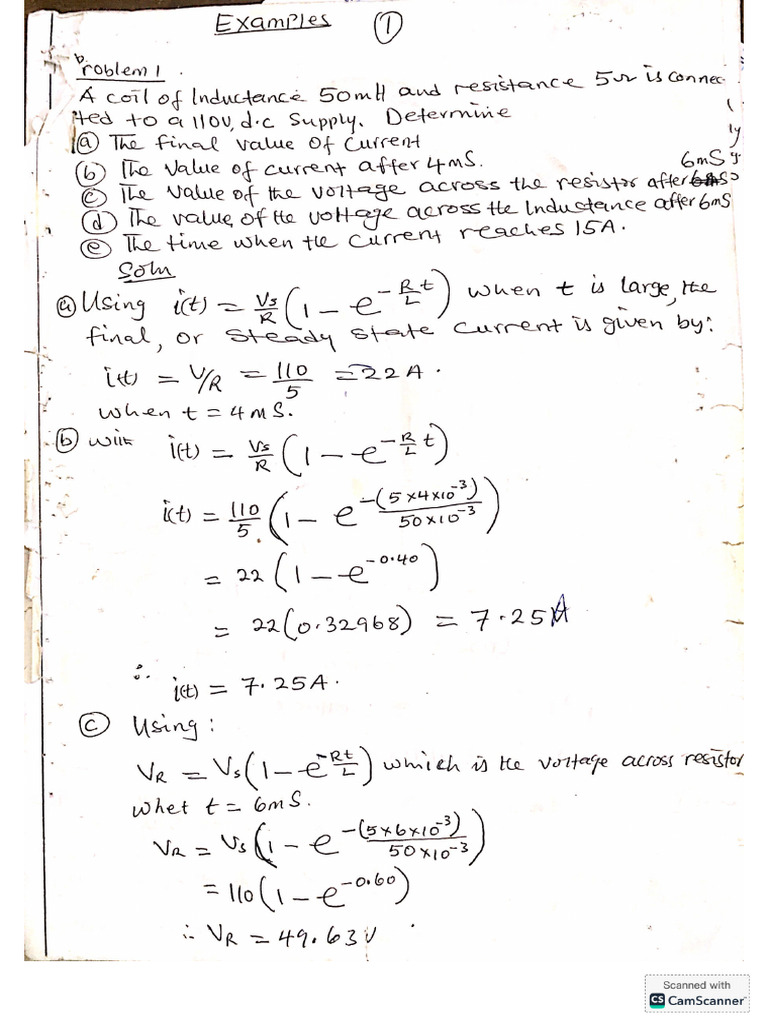 Examples ①
Problem 1.
A coil of Inductance 50mH and resistance 5Ω is connec-
ted to a 110V, d.c Supply. Determine
(a) The final value of Current
(b) The Value of current after 4mS.
6mS
(c) The Value of the voltage across the resistor after
(d) The value of the voltage across the Inductance after 6mS
(e) The time when the current reaches 15A.
Soln
(a) Using i(t) = Vs/R (1 − e^(−R/L t)) when t is large, the
final, or steady state current is given by:
i(t) = V/R = 110/5 = 22A.
when t = 4mS.
(b) with i(t) = Vs/R (1 − e^(−R/L t))
i(t) = 110/5 (1 − e^(−(5×4×10^−3)/(50×10^−3)))
= 22 (1 − e^(−0.40))
= 22(0.32968) = 7.25A
∴ i(t) = 7.25A.
(c) Using:
VR = Vs(1 − e^(−Rt/L)) which is the voltage across resistor
whet t = 6mS.
VR = Vs(1 − e^(−(5×6×10^−3)/(50×10^−3)))
= 110(1 − e^(−0.60))
∴ VR = 49.63V
Scanned with
CS CamScanner